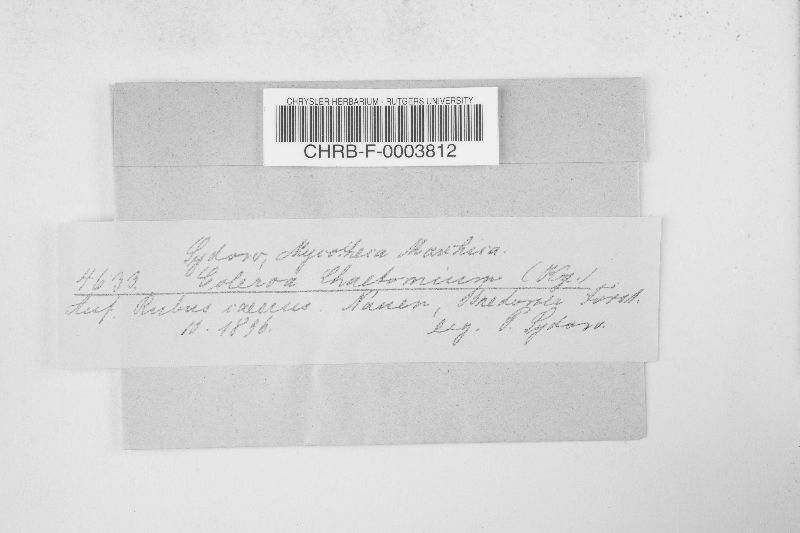 CHRYSLER HERBARIUM - RUTGERS UNIVERSITY
CHRB-F-0003812
Sydow, Mycotheca Marchica.
4633. Coleroa Chaetomium (Kz.)
Auf Rubus caesius. Nauen, Bredower Forst.
10. 1896. leg. P. Sydow.